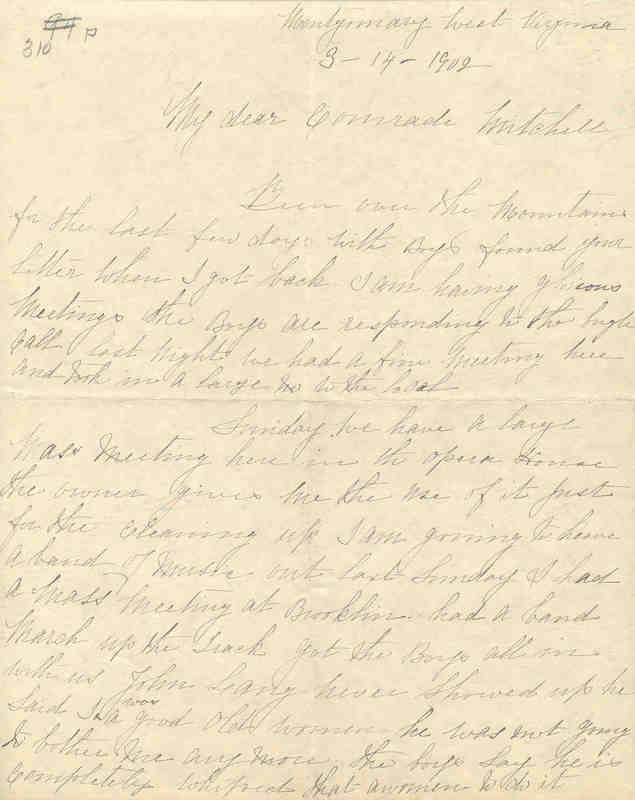 94 P
310
Montgomary West Virginia
3-14-1902
My dear Comrade Mitchell
Been over the Mountains
for the last few days with Boys found your
letter when I got back I am having glorious
Meetings the Boys are responding to the bugle
Call last night we had a fine Meeting here
and took in a large no in the local
Sunday we have a large
Mass Meeting here in the opera House
the owner gives me the use of it Just
for the cleaning up I am going to have
a band of music out last Sunday I had
a Mass Meeting at Brooklin had a band
March up the Track got the Boys all in
with us John Laing never showed up he
said I was a good old women he was not going
to bother me any more the boys say he is
Completely whiped that awomen to do it